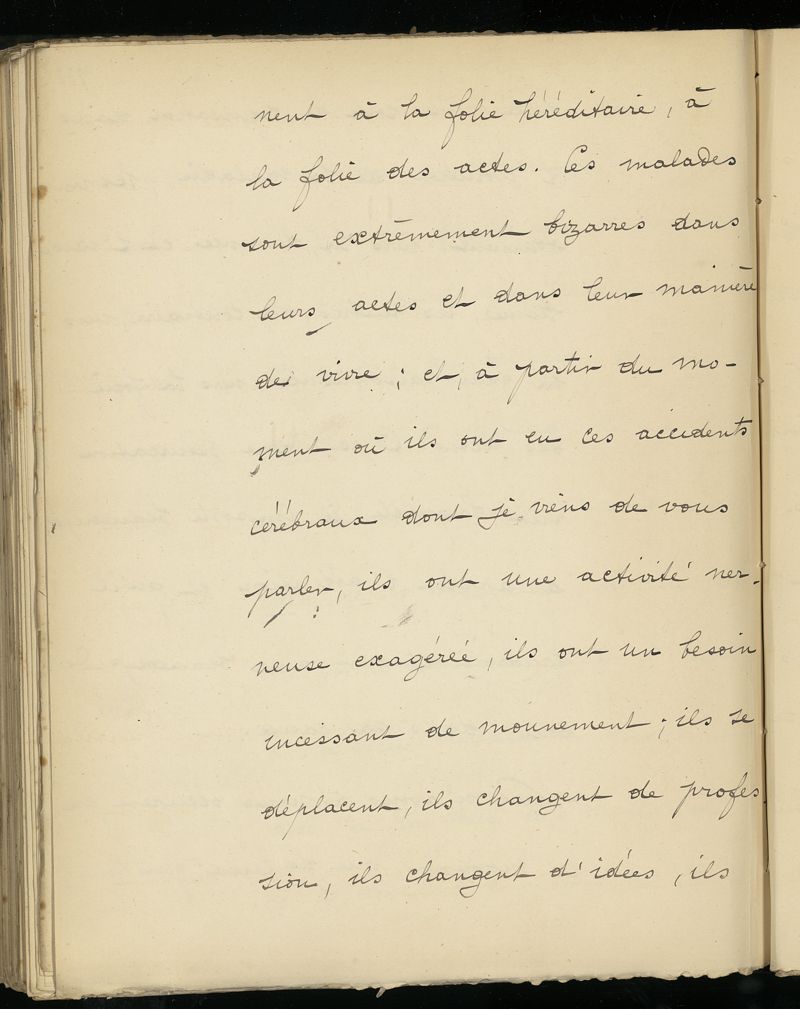 nent à la folie héréditaire, à
la folie des actes. Ces malades
sont extrêmement bizarres dans
leurs actes et dans leur manière
de vivre ; et, à partir du mo-
ment où ils ont eu ces accidents
cérébraux dont je viens de vous
parler, ils ont une activité ner-
veuse exagérée, ils ont un besoin
incessant de mouvement ; ils se
déplacent, ils changent de profes
sion, ils changent d'idées, ils